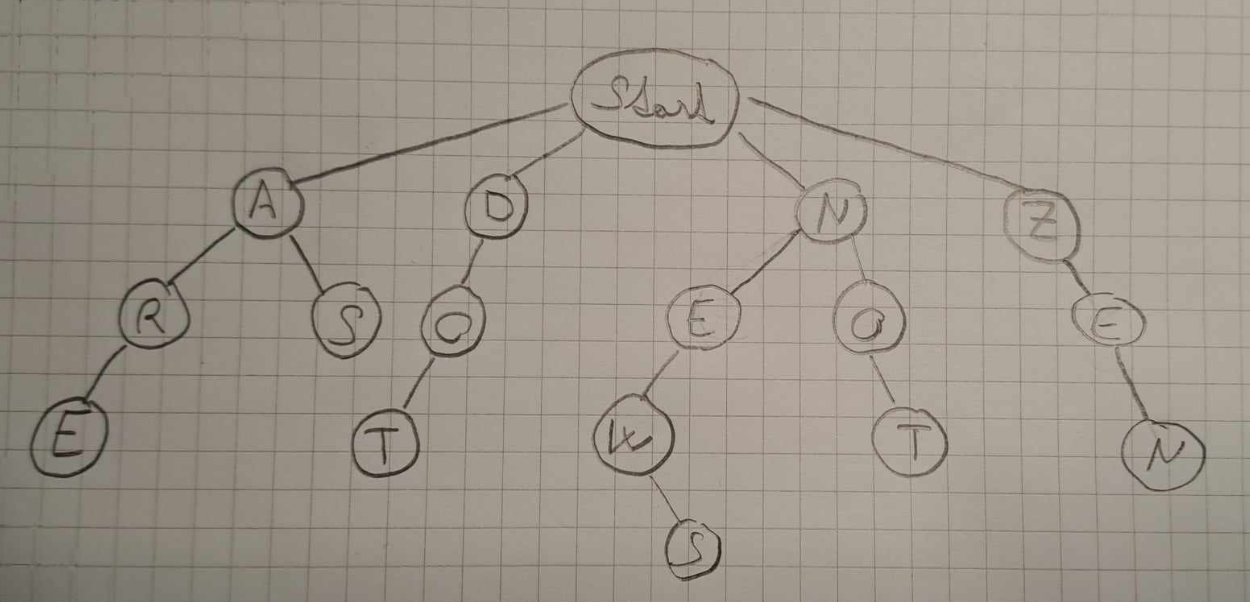 Start
A D N Z
R S O E O E
E T W T N
S